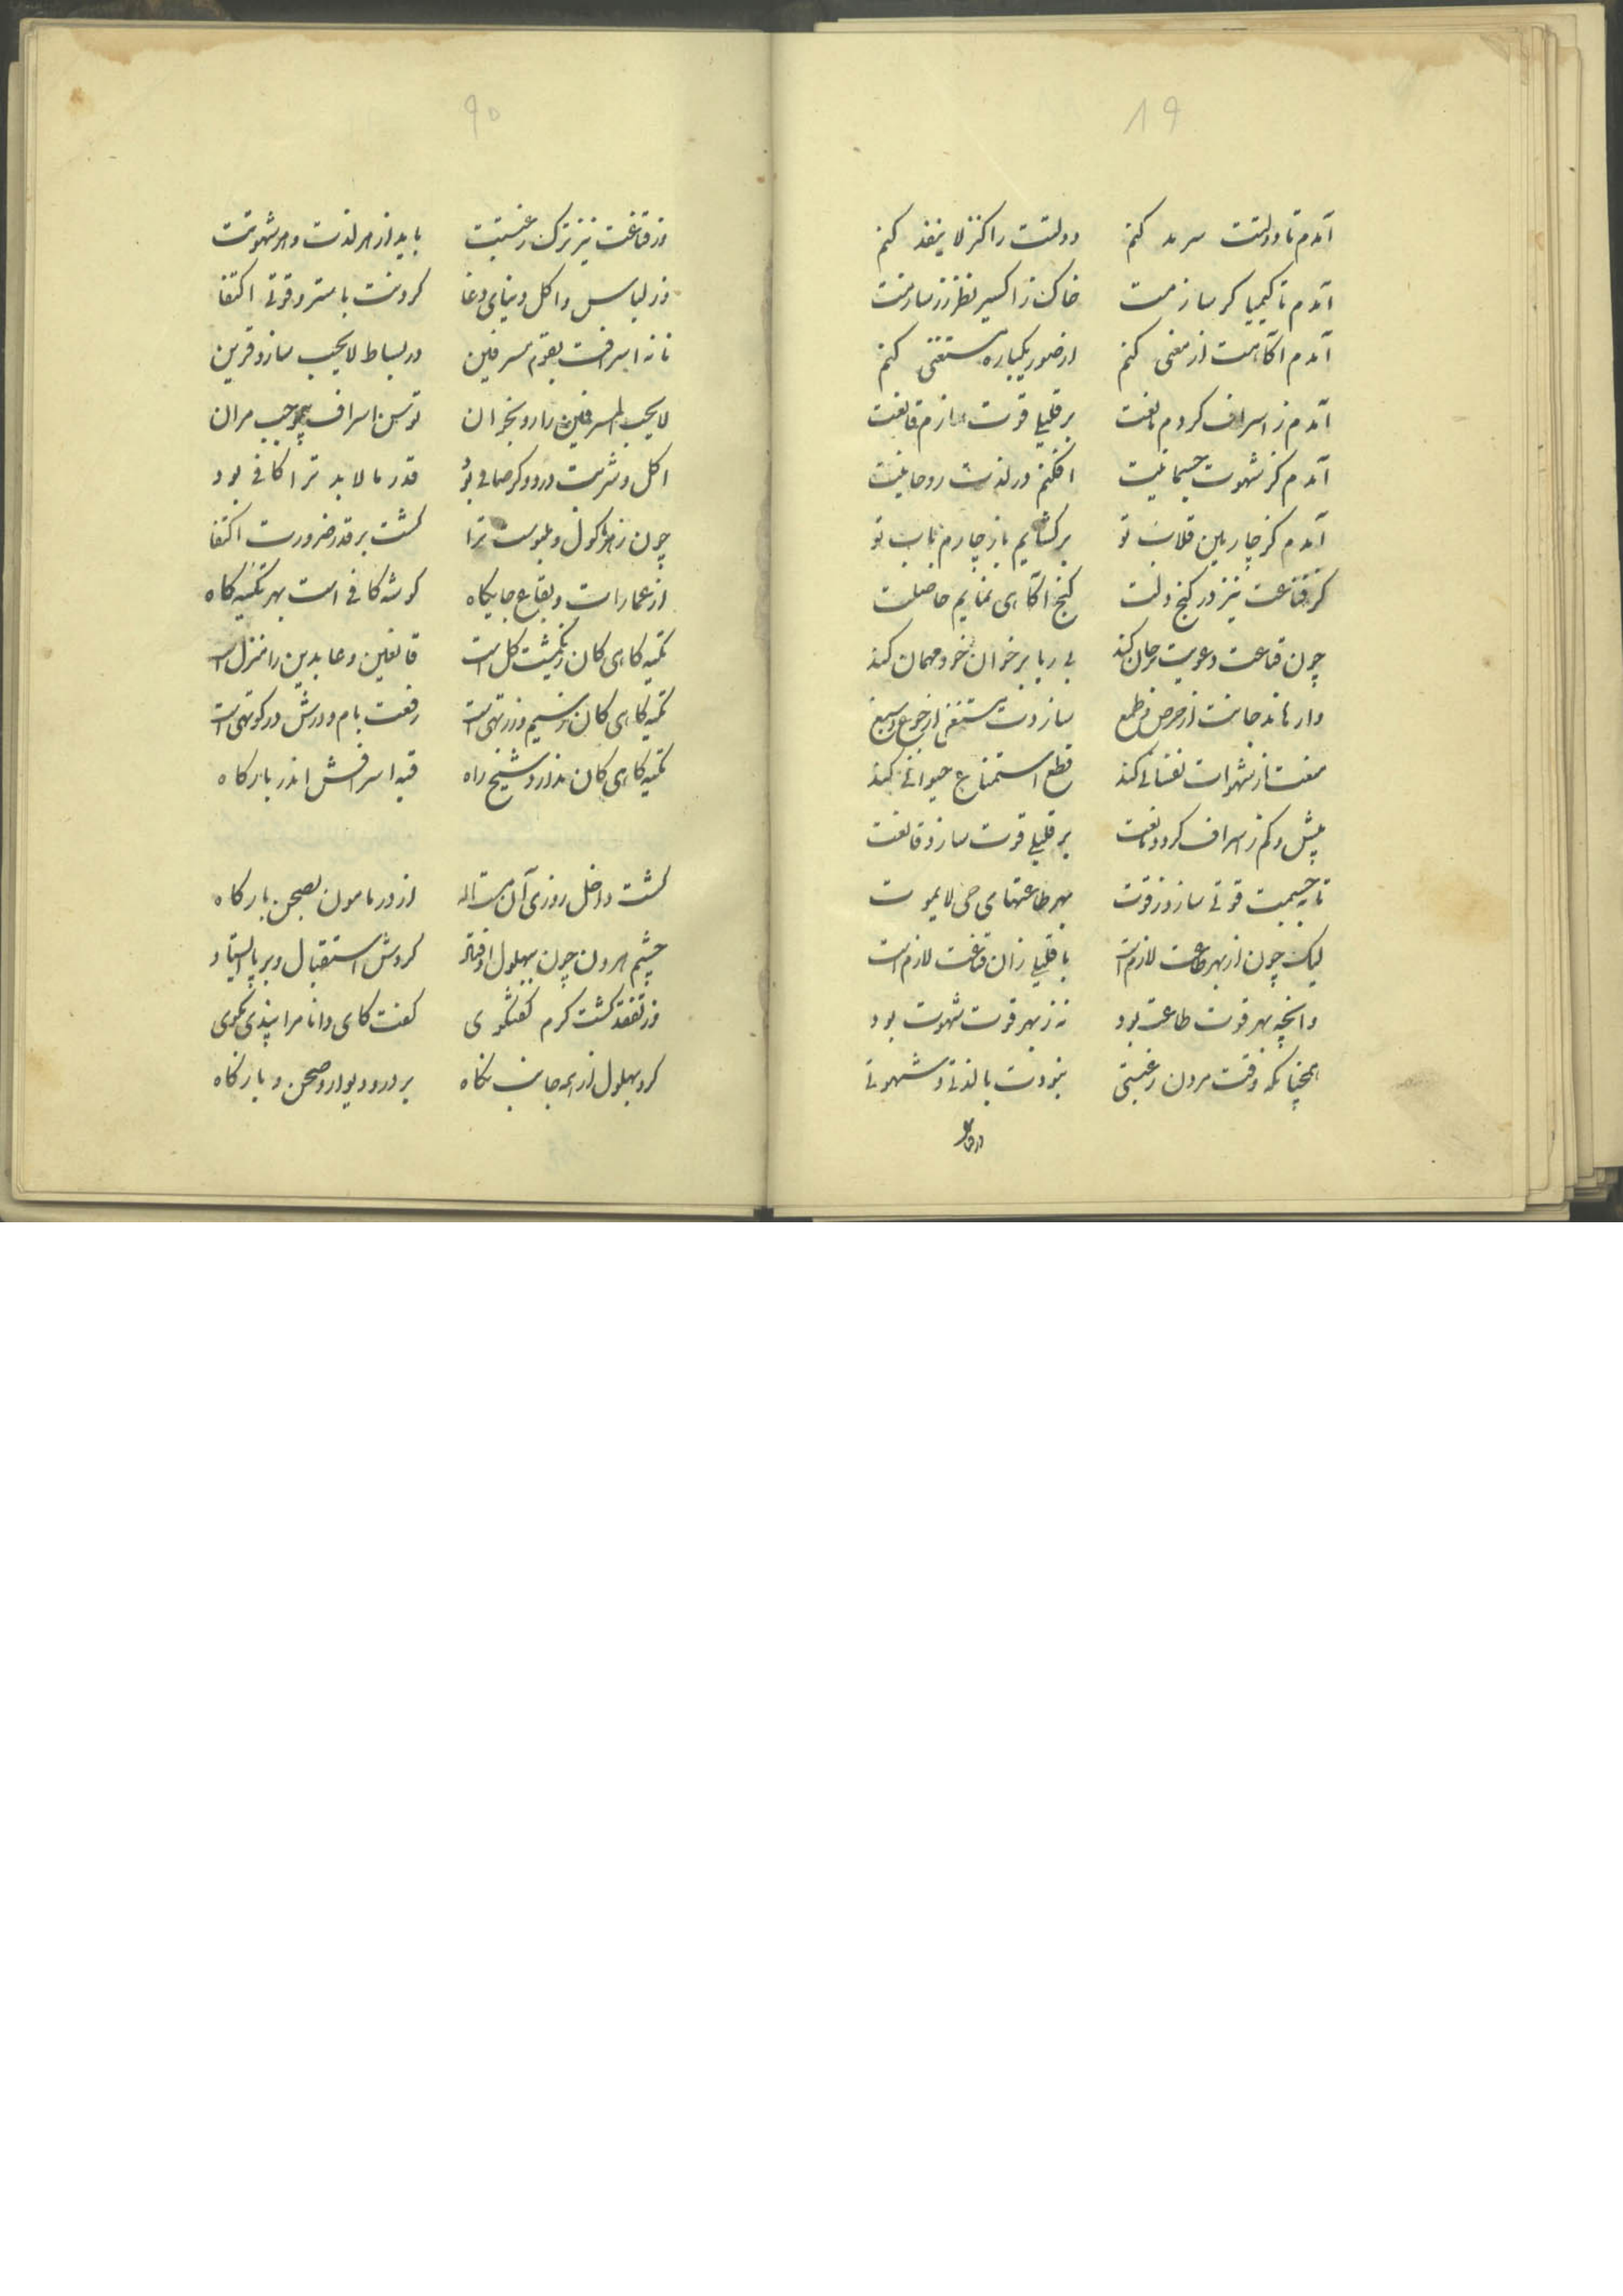 ۸۹
آمدم تا دولتت سرمد کنم دولتت را کنز لا ینفد کنم
آمدم تا کیمیا کر سازمت خاک ز اکسیر نظر زر سازمت
آمدم اکاهت از معنی کنم از صور یکباره مستغنی کنم
آمدم ز اسراف کردم مانعت بر قلیلی قوت سازم قانعت
آمدم کز شهوت جسمانیت افکنم در لذت روحانیت
آمدم کز چار بین قلاب تو برکشایم باز چارم باب تو
کز قناعت نیز در کنج دلت کنج اکاهی نمایم حاصلت
چون قناعت دعوت مرجان کند بی ریا بر خوان خود مهمان کند
وارهاند جانت از حرص و طمع سازدت مستغنی از جوع و شبع
منعت از شهوات نفسانی کند قطع استمتاع حیوانی کند
بیش و کم ز اسراف کردد مانعت بر قلیلی قوت سازد قانعت
تا بجسمت قوتی سازد ز قوت بهر طاعتهای حی لا یموت
لیک چون از بهر طاعت لازم است با قلیلی زان قناعت لازم است
وانچه بهر قوت طاعت بود نه ز بهر قوت شهوت بود
همچنانکه وقت مردن رغبتی نبودت با لذتی و شهوتی
۹۰
در قناعت نیز ترک رغبتت باید از هر لذت و هر شهوتت
وز لباس و اکل دنیای دغا کردنت با ستر و قوتی اکتفا
تا نه اسرافت بقوم مسرفین در بساط لایحب سازد قرین
لایحب المسرفین را رو بخوان توسن اسراف بیموجب مران
اکل و شربت درد و کر صافی بود قدر مالابد ترا کافی بود
چون ز هر ماکول و ملبوست ترا کشت بر قدر ضرورت اکتفا
از عمارات و بقاع جایکاه کوشه کافی است بهر تکیه کاه
تکیه کاهی کان ز یکمشت کل است قانعین و عابدین را منزل است
تکیه کاهی کان ز سیم و زر تهی است رفعت بام و درش در کوتهی است
تکیه کاهی کان ندارد شیخ راه قبه اسرافش اندر بارکاه
کشت داخل روزی آن مست اله از در مامون بصحن بارکاه
چشم هرون چون ببهلول اوفتاد کردش استقبال و بر پا ایستاد
وز تفقد کشت کرم کفتکوی کفت کای دانا مرا پندی بکوی
کرد بهلول از همه جانب نکاه بر در و دیوار و صحن و بارکاه